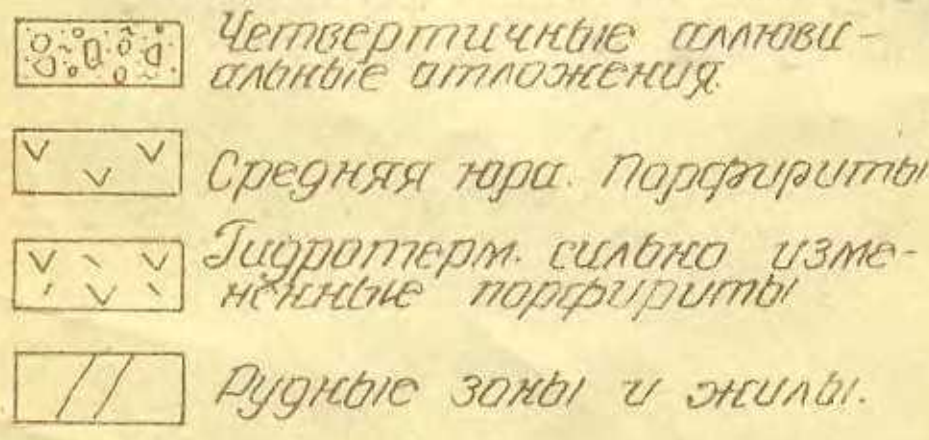 Четвертичные аллюви-
альные отложения.
Средняя юра. Порфириты
Гидротерм. сильно изме-
нённые порфириты
Рудные зоны и жилы.